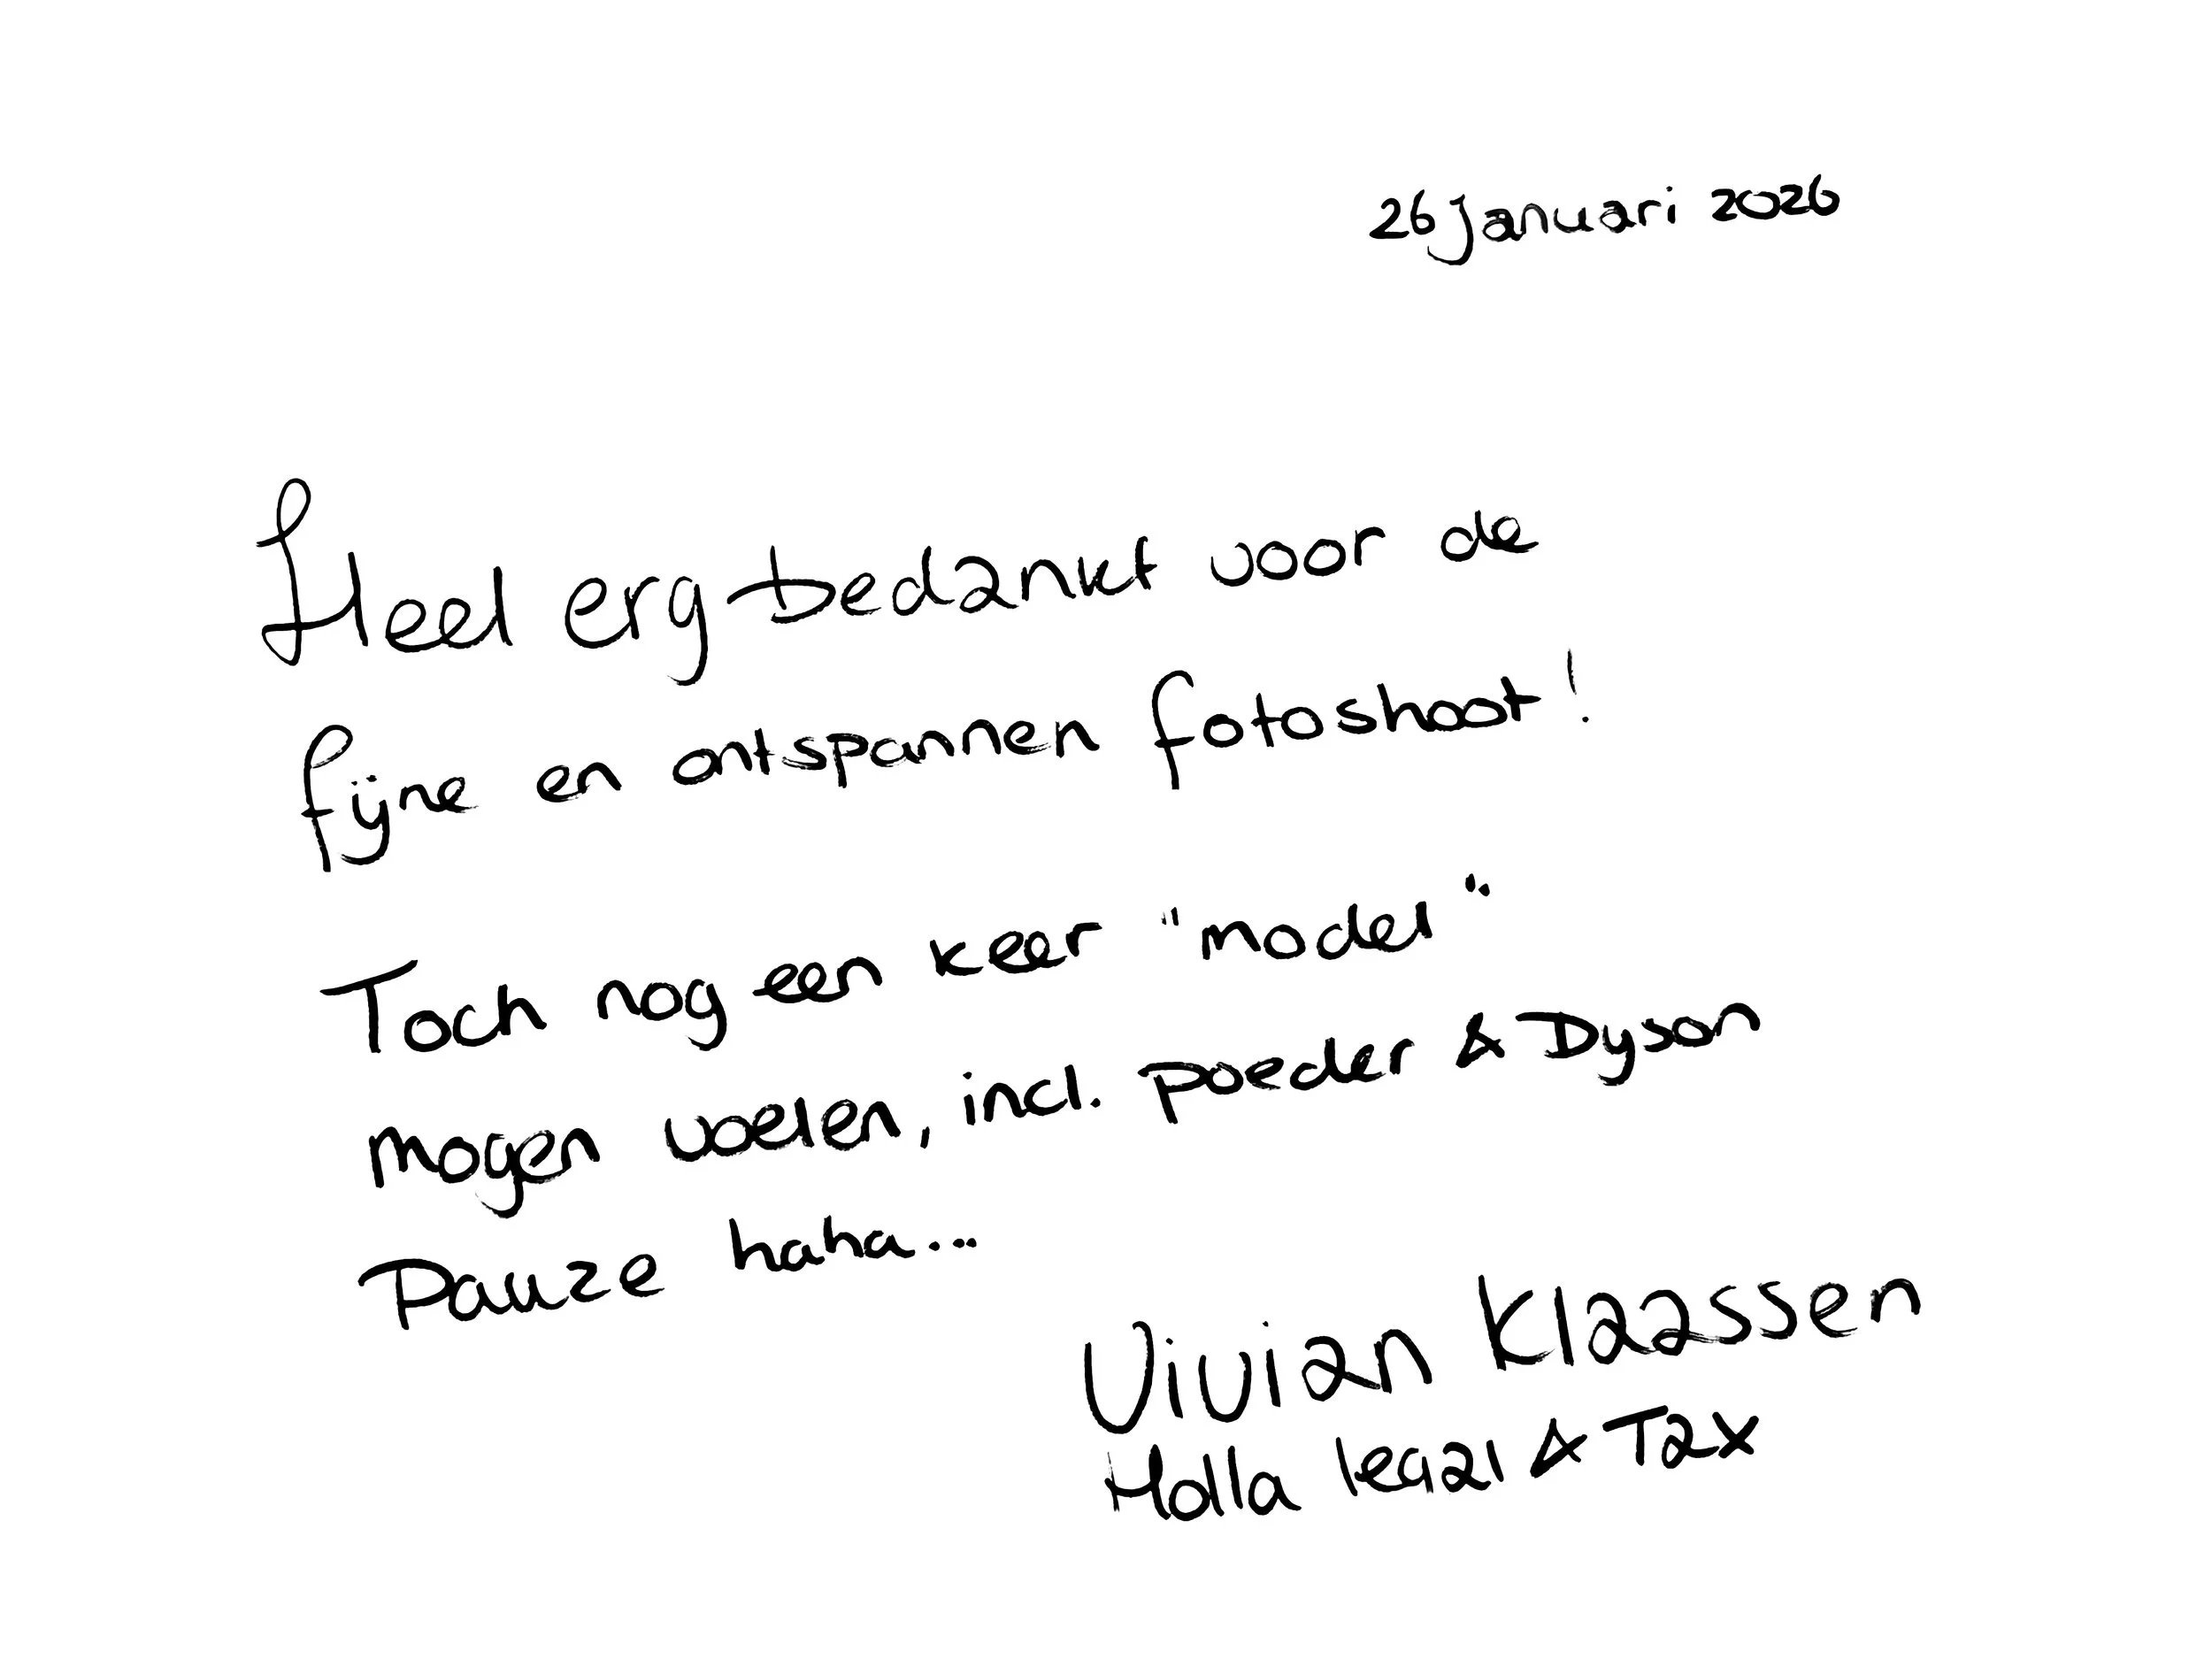 26 januari 2026
Heel erg bedankt voor de
fijne en ontspannen fotoshoot!
Toch nog een keer "model"
mogen voelen, incl. poeder & Dyson
Pauze haha...
Vivian Klaassen
Holla legal & Tax